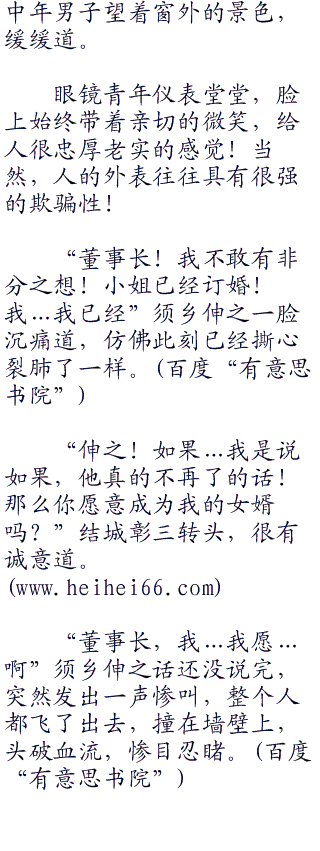 中年男子望着窗外的景色，
缓缓道。
眼镜青年仪表堂堂，脸
上始终带着亲切的微笑，给
人很忠厚老实的感觉！当
然，人的外表往往具有很强
的欺骗性！
“董事长！我不敢有非
分之想！小姐已经订婚！
我…我已经”须乡伸之一脸
沉痛道，仿佛此刻已经撕心
裂肺了一样。(百度“有意思
书院”)
“伸之！如果…我是说
如果，他真的不再了的话！
那么你愿意成为我的女婿
吗？”结城彰三转头，很有
诚意道。
(www.heihei66.com)
“董事长，我…我愿…
啊”须乡伸之话还没说完，
突然发出一声惨叫，整个人
都飞了出去，撞在墙壁上，
头破血流，惨目忍睹。(百度
“有意思书院”)